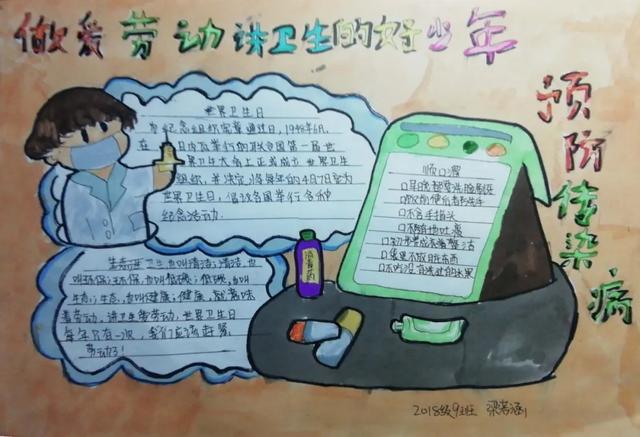 做爱劳动讲卫生的好少年
预防传染病
世界卫生日
为纪念组织宪章通过日,1948年6月,
在日内瓦举行的联合国第一届世
界卫生大会上正式成立世界卫生
组织,并决定将每年的4月7日定为
世界卫生日,倡议各国举行各种
纪念活动.
生态讲卫生也叫清洁;清洁,也
叫环保;环保,也叫低碳;低碳,也叫
生态;生态,也叫健康;健康,就意味
着劳动,讲卫生带劳动,世界卫生日
每年只有一次,我们应该赶紧
劳动了!
消毒药
顺口溜
口早晚都要洗脸刷牙
口饭前便后都要洗手
口不含手指头
口不随地吐痰
口不吃没有洗过的水果
2018级9班